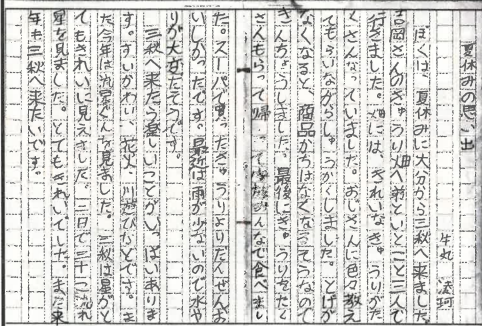 夏休みの思い出
牛丸 流珂
ぼくは、夏休みに大分から三秋へ来ました。
吉岡さんのきゅうり畑へ弟といとこと三人で
行きました。畑には、きれいなきゅうりがた
くさんなっていました。おじさんに色々教え
てもらいながらしゅうかくしました。とげが
なくなると、商品かちはなくなるそうなので
きんちょうしました。最後にきゅうりをたく
さんもらって帰って家族みんなで食べまし
た。スーパーで買ったきゅうりよりだんぜんお
いしかったです。最近は雨が少ないので水や
りが大変だそうです。
三秋へ来たら楽しいことがいっぱいありま
す。すいかわり、花火、川遊びなどです。ま
た今年は流星ぐんも見ました。三秋は星がと
てもきれいに見えました。二日で三十こ流れ
星を見ました。とてもきれいでした。また来
年も三秋へ来たいです。